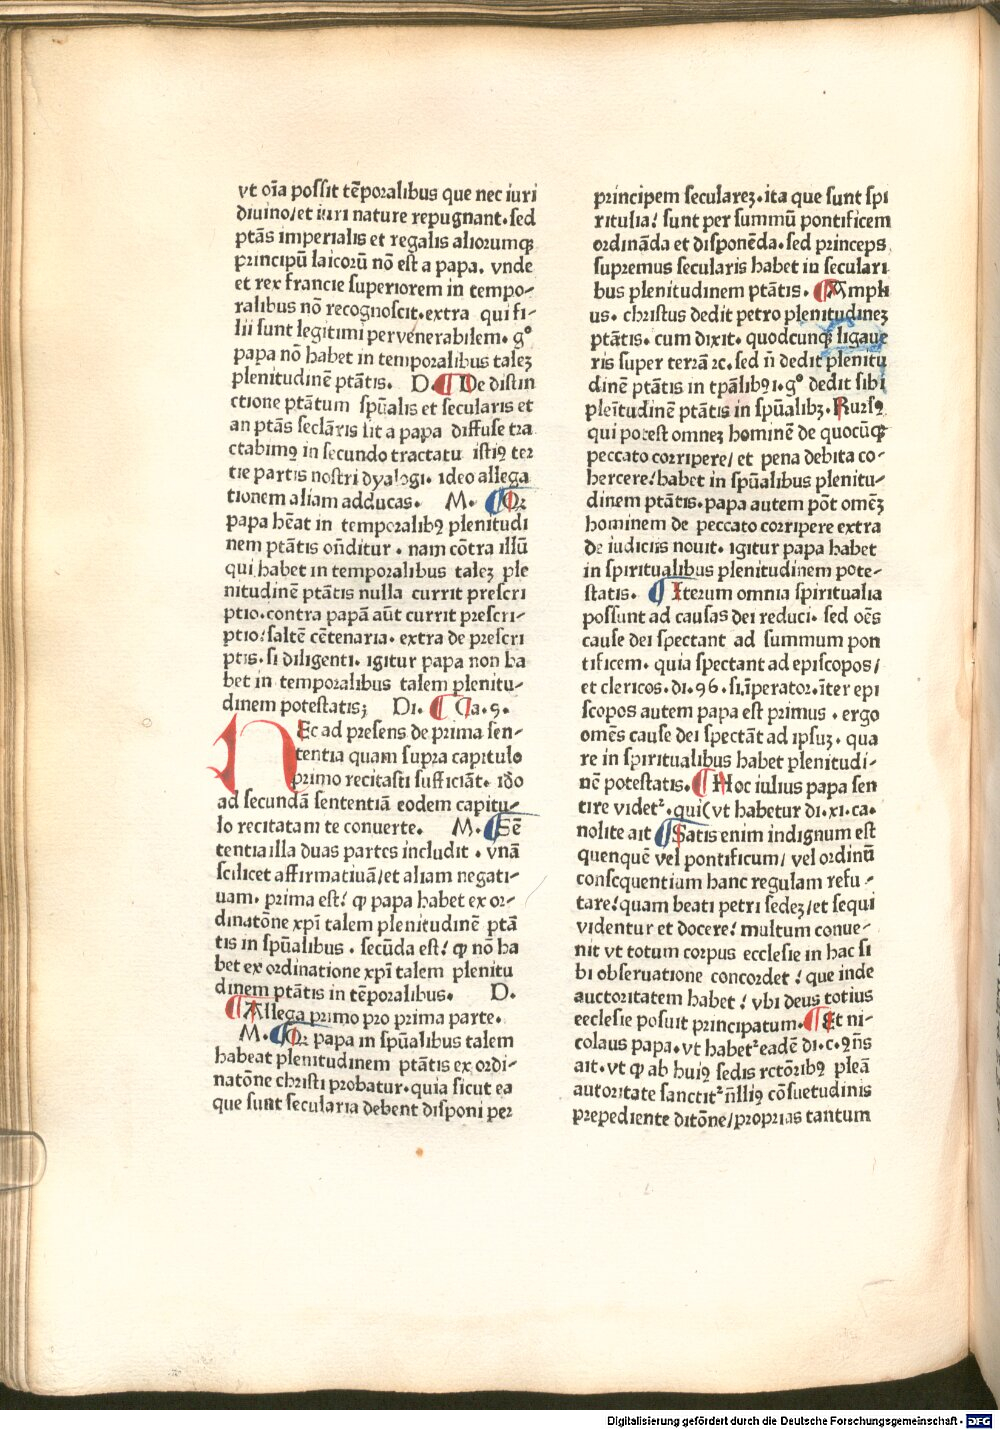 vt oı̄a possit tēporalibus que nec iuri
diuino/et iuri nature repugnant.sed
ptās imperialis et regalis aliorumqȝ
principū laicorū nō est a papa. vnde
et rex francie superiorem in tempo-
ralibus nō recognoscit.extra qui fi-
lii sunt legitimi per venerabilem. gº
papa nō habet in temporalibus taleȝ
plenitudinē ptātis. D. ¶ De distin
ctione ptātum spūalis et secularis et
an ptās seclāris sit a papa diffuse tra
ctabimꝰ in secundo tractatu istiꝰ ter
tie partis nostri dyalogi. ideo allega
tionem aliam adducas. M. ¶ Qꝛ
papa hēat in temporalibꝰ plenitudi
nem ptātis on̄ditur . nam cōtra illū
qui habet in temporalibus taleȝ ple
nitudinē ptātis nulla currit prescri
ptio.contra papā aūt currit prescri-
ptio: saltē cētenaria. extra de prescri
ptis.si diligenti. igitur papa non ha
bet in temporalibus talem plenitu-
dinem potestatis; Di. ¶ Ca.9.
NEc ad presens de prima sen-
tentia quam supra capitulo
primo recitasti sufficiāt. ido
ad secundā sententiā eodem capitu-
lo recitatam te conuerte. M. ¶ Sē
tentia illa duas partes includit . vnā
scilicet affirmatiuā/et aliam negati-
uam. prima est: ꝙ papa habet ex or-
dinatōne xp̄i talem plenitudinē ptā
tis in spūalibus . secūda est: ꝙ nō ha
bet ex ordinatione xp̄i talem plenitu
dinem ptātis in tēporalibus. D.
¶ Allega primo pro prima parte.
M. ¶ Qꝛ papa in spūalibus talem
habeat plenitudinem ptātis ex ordi-
natōne christi probatur.quia sicut ea
que sunt secularia debent disponi per
principem seculareȝ.ita que sunt spi
ritulia: sunt per summū pontificem
ordināda et disponēda.sed princeps
supremus secularis habet in seculari
bus plenitudinem ptātis. ¶ Ampli
us. christus dedit petro plenitudineȝ
ptātis. cum dixit. quodcunqȝ ligaue
ris super terrā ⁊c. sed n̄ dedit plenitu
dinē ptātis in tp̄alibꝰ.gº dedit sibi
plēitudinē ptātis in spūalibȝ. Rursꝰ
qui potest omneȝ hominē de quocūqȝ
peccato corripere/ et pena debita co-
hercere: habet in spūalibus plenitu-
dinem ptātis.papa autem pōt omēȝ
hominem de peccato corripere extra
de iudiciis nouit. igitur papa habet
in spiritualibus plenitudinem pote-
statis. ¶ Iterum omnia spiritualia
possunt ad causas dei reduci. sed oēs
cause dei spectant ad summum pon
tificem. quia spectant ad episcopos/
et clericos.di.96.si ı̄perator.ı̄ter epi
scopos autem papa est primus . ergo
omēs cause dei spectāt ad ipsuȝ. qua
re in spiritualibus habet plenitudi-
nē potestatis. ¶ Hoc iulius papa sen
tire videt᷑.qui(vt habetur di.xi.ca.
nolite ait ¶ Satis enim indignum est
quenquē vel pontificum/ vel ordinū
consequentium hanc regulam refu-
tare: quam beati petri sedeȝ/et sequi
videntur et docere: multum conue-
nit vt totum corpus ecclesie in hac si
bi obseruatione concordet : que inde
auctoritatem habet : vbi deus totius
ecclesie posuit principatum. ¶ Et ni-
colaus papa.vt habet᷑ eadē di.c.ꝯn̄s
ait.vt ꝙ ab huiꝰ sedis rctōribꝰ pleā
autoritate sanctit᷑ n̄lliꝰ cōsuetudinis
prepediente ditōne/proprias tantum
Digitalisierung gefördert durch die Deutsche Forschungsgemeinschaft - DFG